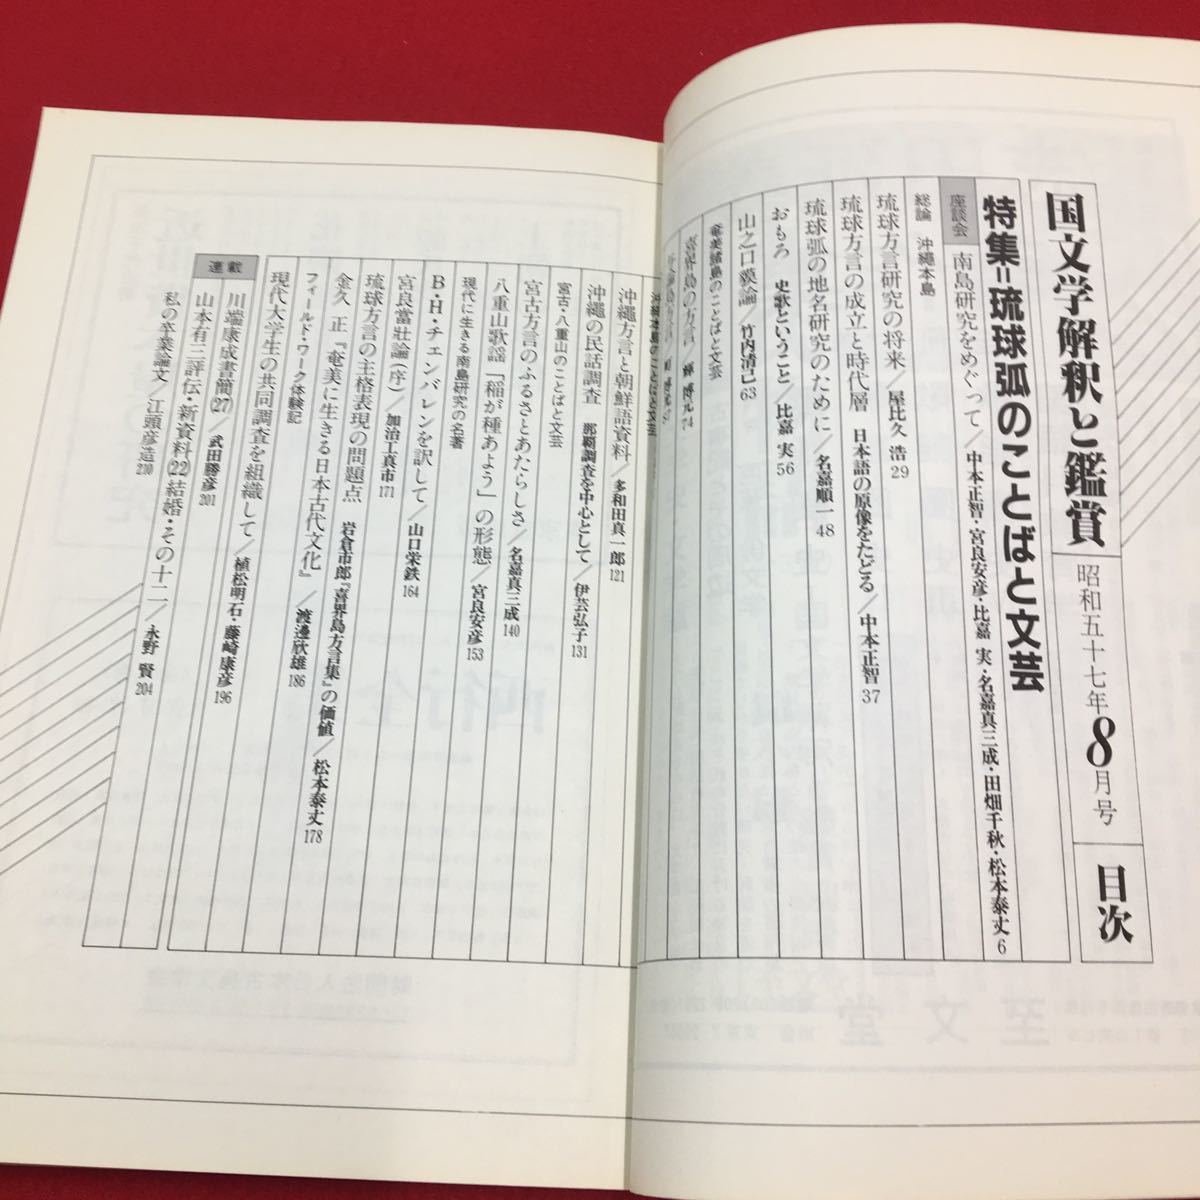 国文学解釈と鑑賞 昭和五十七年8月号 目次
特集=琉球弧のことばと文芸
座談会 南島研究をめぐって／中本正智・宮良安彦・比嘉 実・名嘉真三成・田畑千秋・松本泰丈 6
総論 沖縄本島
琉球方言研究の将来／屋比久 浩 29
琉球方言の成立と時代層 日本語の原像をたどる／中本正智 37
琉球弧の地名研究のために／名嘉順一 48
おもろ 史歌ということ／比嘉 実 56
山之口貘論／竹内清己 63
奄美諸島のことばと文芸
喜界島の方言
沖縄本島のことばと文芸
沖縄方言と朝鮮語資料／多和田真一郎 121
沖縄の民話調査 那覇調査を中心として／伊芸弘子 131
宮古・八重山のことばと文芸
宮古方言のふるさとあたらしさ／名嘉真三成 140
八重山歌謡「稲が種あよう」の形態／宮良安彦 153
現代に生きる南島研究の名著
B・H・チェンバレンを訳して／山口栄鉄 164
宮良當壯論（序）／加治工真市 171
琉球方言の主格表現の問題点 岩倉市郎『喜界島方言集』の価値／松本泰丈 178
金久 正『奄美に生きる日本古代文化』／渡邊欣雄 186
フィールド・ワーク体験記
現代大学生の共同調査を組織して／植松明石・藤崎康彦 196
連載
川端康成書簡(27)／武田勝彦 201
山本有三評伝・新資料(22)結婚・その十二／永野 賢 204
私の卒業論文／江頭彦造 210